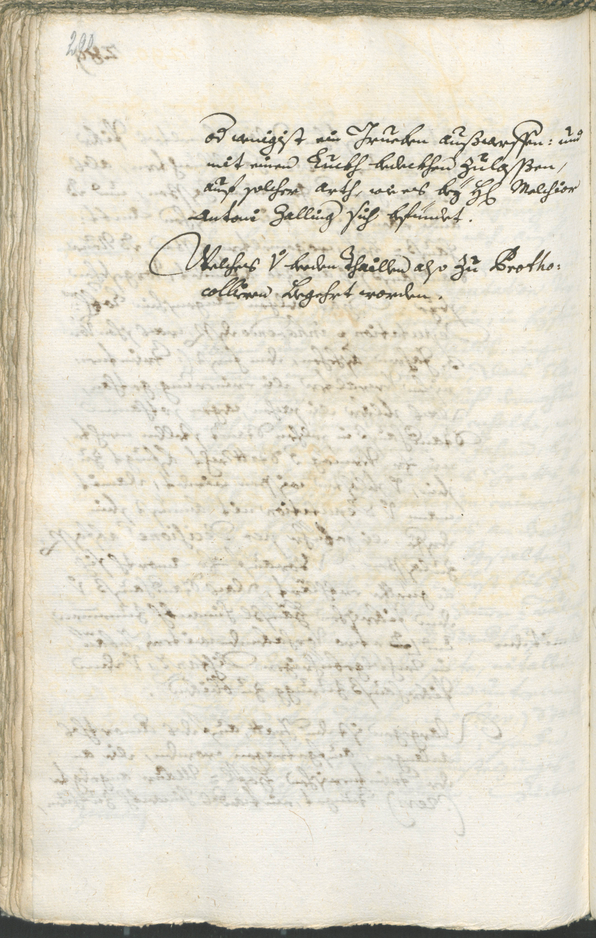 290
od wenigist ein Trueben außwerffen: und
mit einen Luckh bedeckhen Zulassen,
auf solcher arth, wie es bey H Melchior
Antoni Zalling sich befündet.
Welches v beeden Thaillen also zu Protho:
colliren begehrt worden.